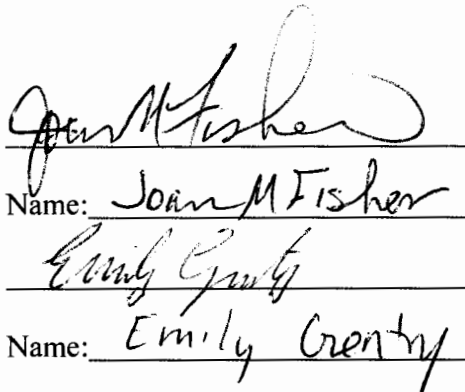 Joan M Fisher
Name: Joan M Fisher
Emily Gentry
Name: Emily Gentry